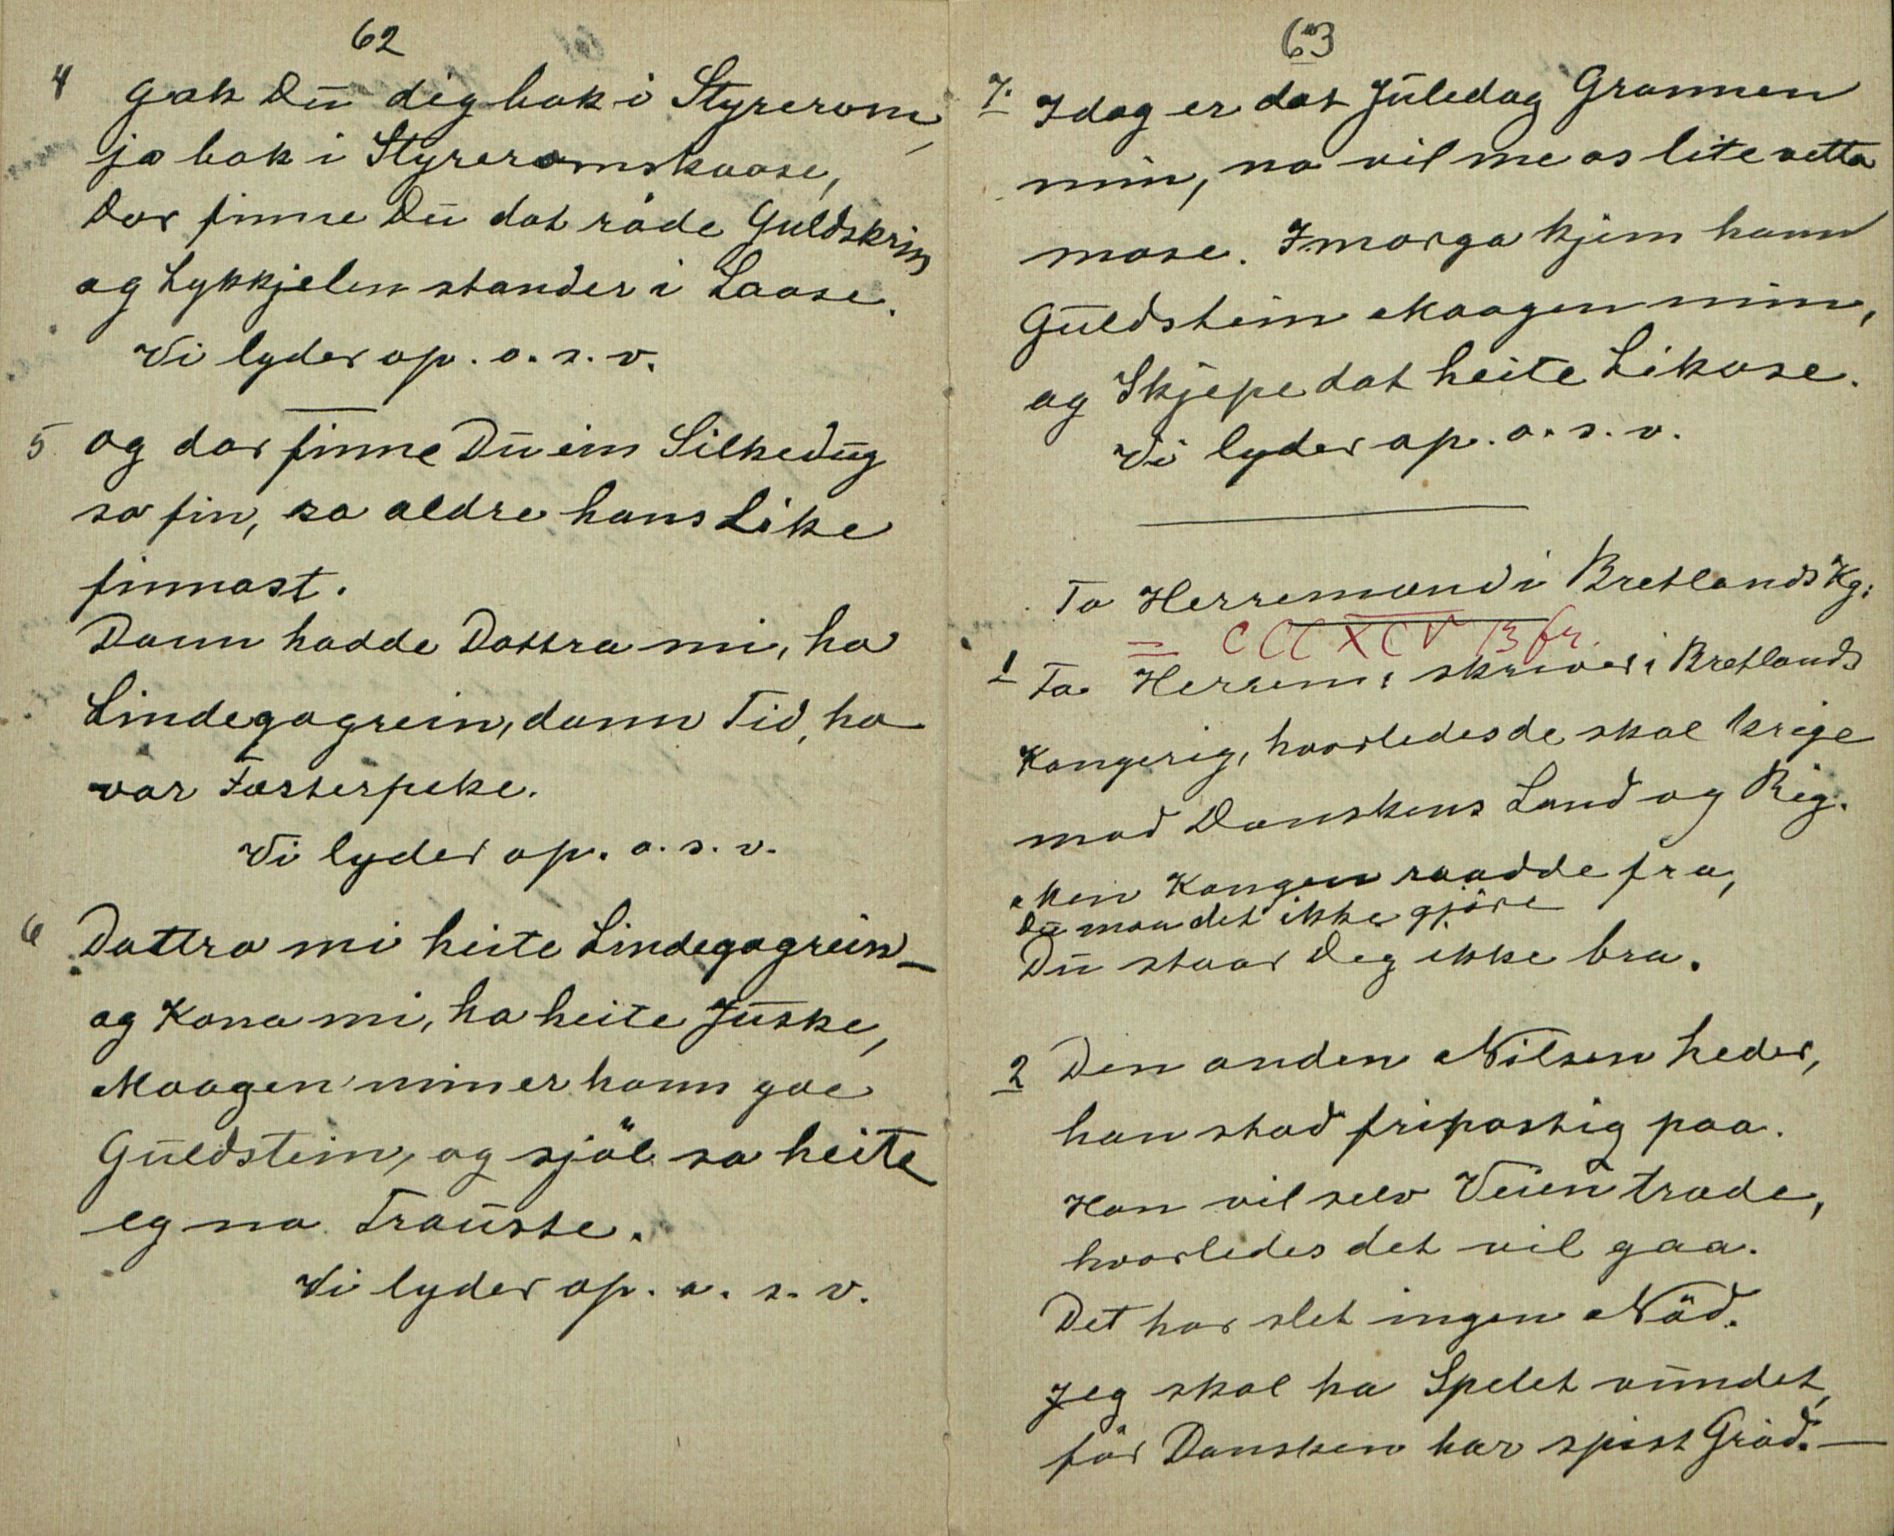 62
4 Gak Du dig bak i Styrerom,
ja bak i Styreromskaase,
Dar finne Du dat röde Guldskrin
og Lykkjelen stander i Laase.
Vi lyder op. o. s. v.
5 og dar finne Du ein Silkedug
so fin, so aldre hans Like
finnast.
Dann hadde Dottra mi, ho
Lindegagrein, dann Tid, ho
var Fæsterpeke.
Vi lyder op. o. s. v.
6 Dottra mi heite Lindegagrein
og Kona mi, ho heite Juske,
Maagen min er hann goe
Guldstein, og sjöl so heite
eg no Trauste.
Vi lyder op. o. s. v.
63
7. Idag er dat Juledag Grannen
min, no vil me os lite vetta
mose. Imorga kjem hann
Guldstein Maagen min,
og Skjepe dat heite Likase.
Vi lyder op. o. s. v.
To Herremænd i Bretlands Kg:
= CCCXCV 13 fr.
1 To Herrem: skriver i Bretlands
Kongerig, hvorledes de skal krige
mod Danskens Land og Rig.
Men Kongen raadde fra,
Du maa det ikke gjöre
Du staar Deg ikke bra.
2 Den anden Nilsen heder,
han stod fripostig paa.
Han vil selv Veien træde,
hvorledes det vil gaa.
Det har slet ingen Nöd.
Jeg skal ha Spelet vundet,
för Dansken har spist Gröd. —